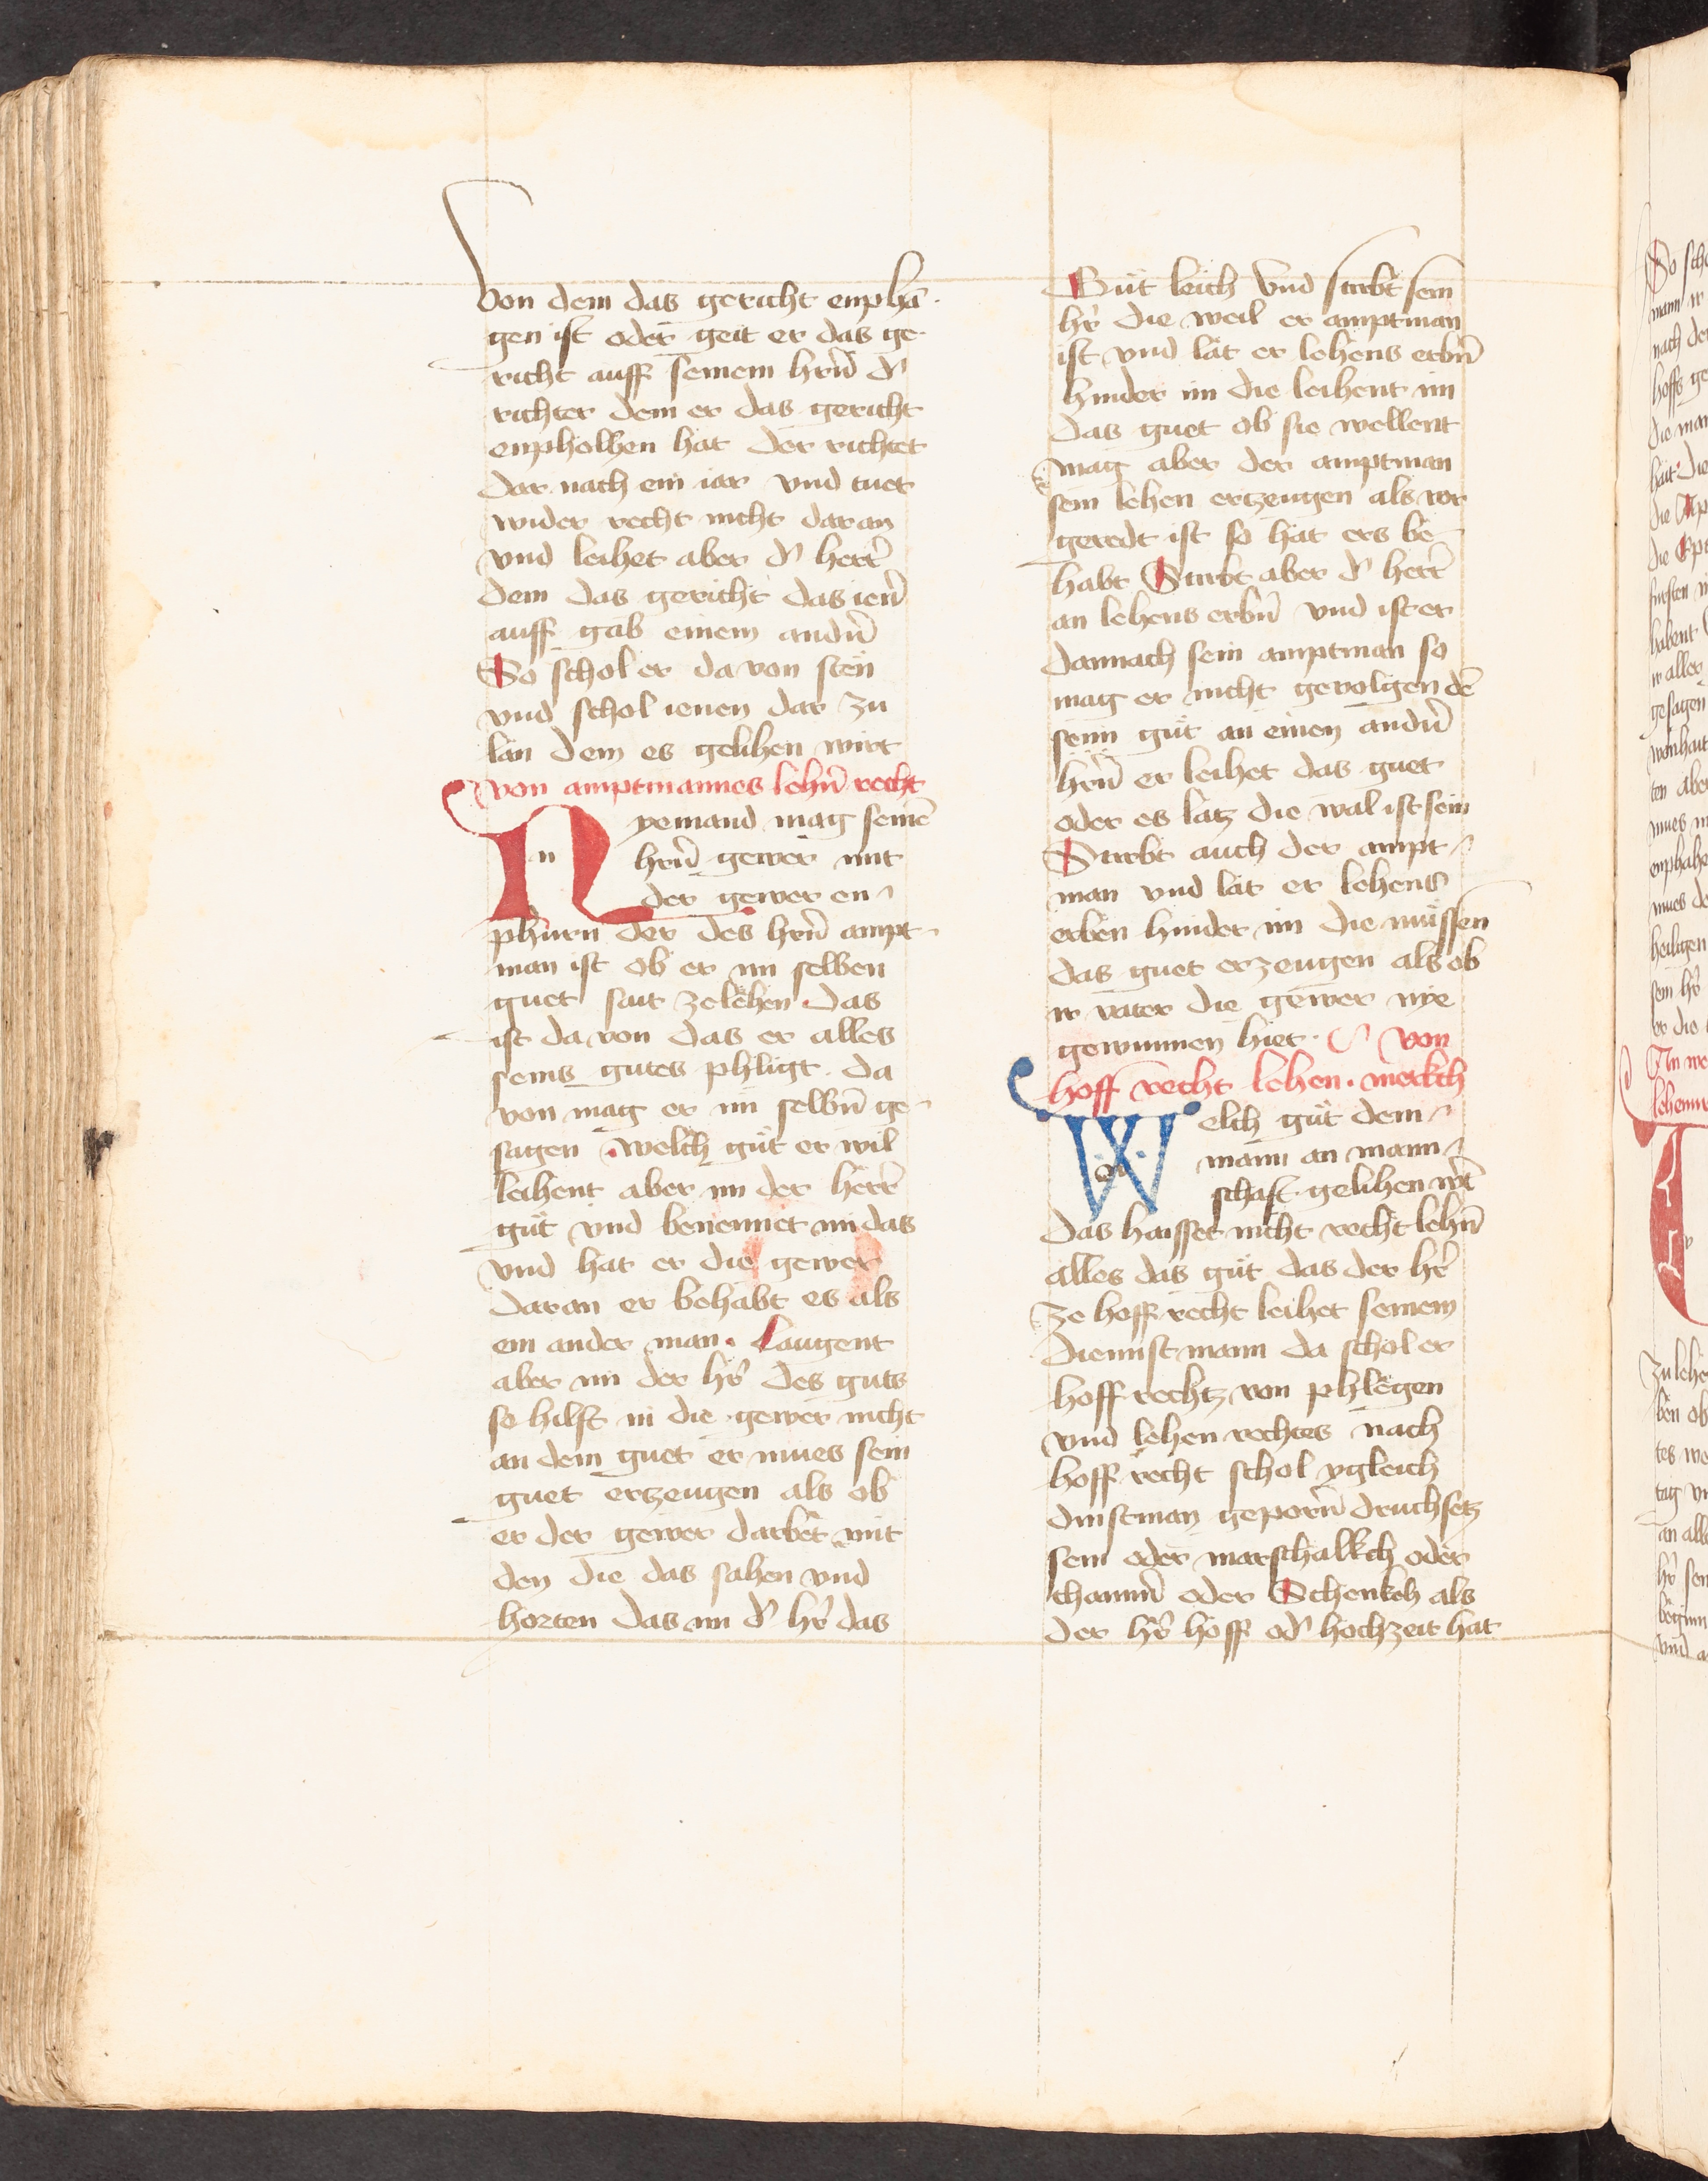 von dem das gericht enphā-
gen ist oder geit er das ge-
richt auff seinem hrn̄ dʾ
richter dem er das gericht
enpholhen hat der richtet
dar nach ein iar vnd tuet
wider recht nicht daran
vnd leihet aber dʾ herr̄
dem das gericht das ien̄
auff gab einem andn̄
So schol er da von sten
vnd schol ienen dar zu
lan dem es gelihen wirt
von amptmannes lehn̄ recht
Nyemand mag seinē
hrn̄ gewer mit
der gewer en-
phurn der des hrn̄ ampt-
man ist ob er im selben
guet sait zelehen. das
ist da von das er alles
seins gutes phligt. da
von mag er im selbn̄ ge-
sagen welch gut er wil
leihent aber im der herr̄
gut vnd benennet im das
vnd hat er die gewer
daran er behabt es als
ein ander man. Laugent
aber im der hr̄ des guts
so hilft in die gewer nicht
an dem guet er mues sein
guet ertzeugen als ob
er der gewer darbet mit
den die das sahen vnd
horten das im dʾ hr̄ das
Gut leich vnd starbt sein
hr̄ die weil er amptman
ist vnd lat er lehens erbn̄
hinder im die leihent im
das guet ob sie wellent
mag aber der amptman
sein lehen ertzeugen als vor
geredt ist so hat ers be-
habt Stirbt aber dʾ herr̄
an lehens erbn̄ vnd ist er
dannach sein amptman so
mag er nicht gevolgen dē
seim gut an einen andn̄
hrn̄ er leihet das guet
oder es latz die wal ist sein
Stirbt auch der ampt-
man vnd lat er lehens
erben hinder im die mussen
das guet erzeugen als ob
ir vater die gewer nye
gewunnen hiet. von
hoff recht lehen. merkch
Welch gut dem
mann an mann-
schaft gelihen wt̄
das haisset nicht recht lehn̄
alles das gut das der hr̄
ze hoff recht leihet seinem
diennstmann da schol er
hoff rechtz von phlegen
vnd lehen rechtes nach
hoff recht schol ygleich
dinstman geporn̄ druchsetz
sein oder marschalkch oder
chamn̄ oder Schenkch als
der hr̄ hoff odʾ hochzeit hat